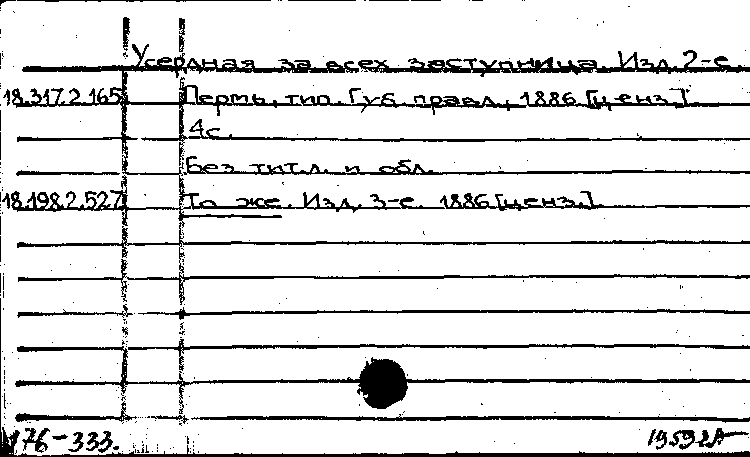 Усердная за всех заступница. Изд. 2-е.
18.317.2.165 Пермь, тип. Губ. правл., 1886 [ценз.].
4с.
Без тит.л. и обл.
18.198.2.527 То же. Изд. 3-е. 1886 [ценз.].
176-333.